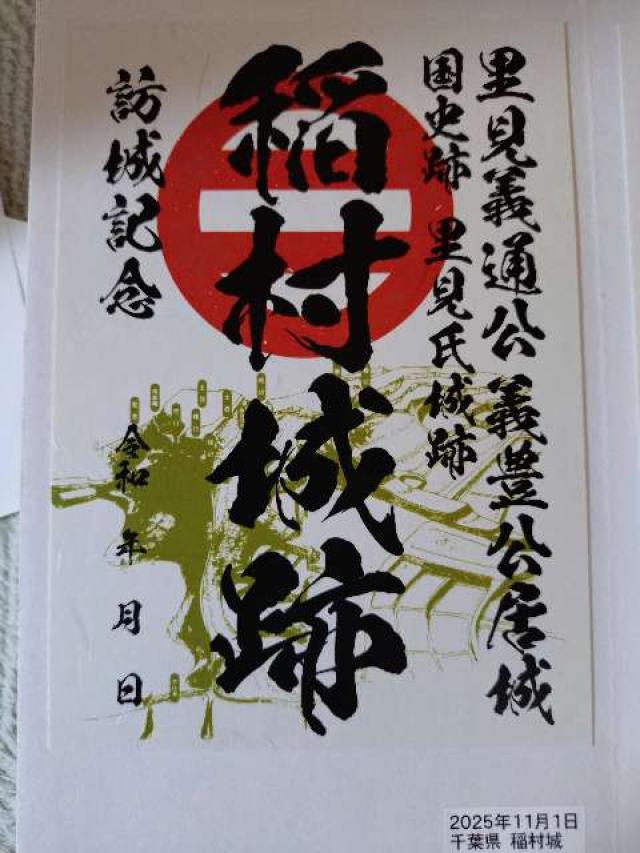 里見義通公 義豊公居城
国史跡 里見氏城跡
稲村城跡
訪城記念
令和 年 月 日
2025年11月1日
千葉県 稲村城